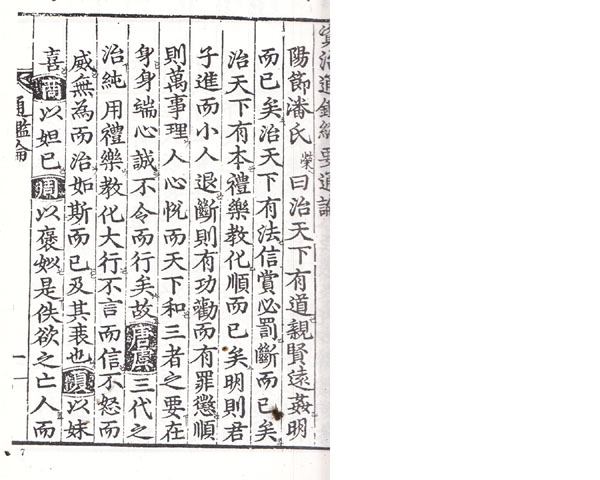 資治通鑑總要通論
陽節潘氏榮曰治天下有道親賢遠姦明
而已矣治天下有法信賞必罰斷而已矣
治天下有本禮樂教化順而已矣明則君
子進而小人退斷則有功勸而有罪懲順
則萬事理人心悅而天下和三者之要在
身身端心誠不令而行矣故唐虞三代之
治純用禮樂教化大行不言而信不怒而
威無為而治如斯而已及其衰也夏以妺
喜商以妲己周以褒姒是佚欲之亡人而
通鑑論 一
7